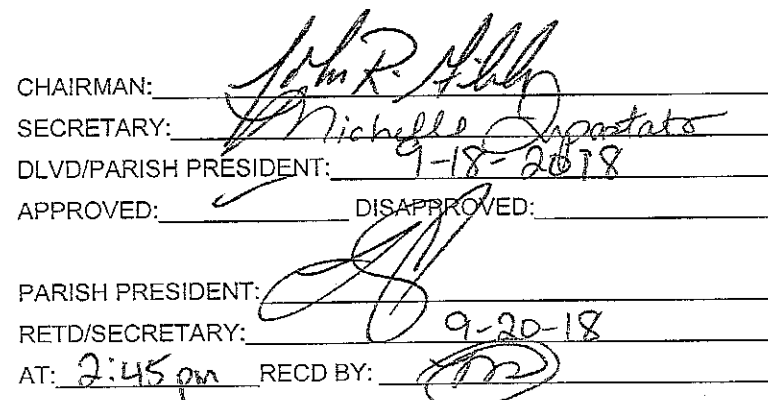 CHAIRMAN: John R.
SECRETARY: Michelle Impastato
DLVD/PARISH PRESIDENT: 9-18-2018
APPROVED: ✓ DISAPPROVED:
PARISH PRESIDENT:
RETD/SECRETARY: 9-20-18
AT: 2:45 pm RECD BY: